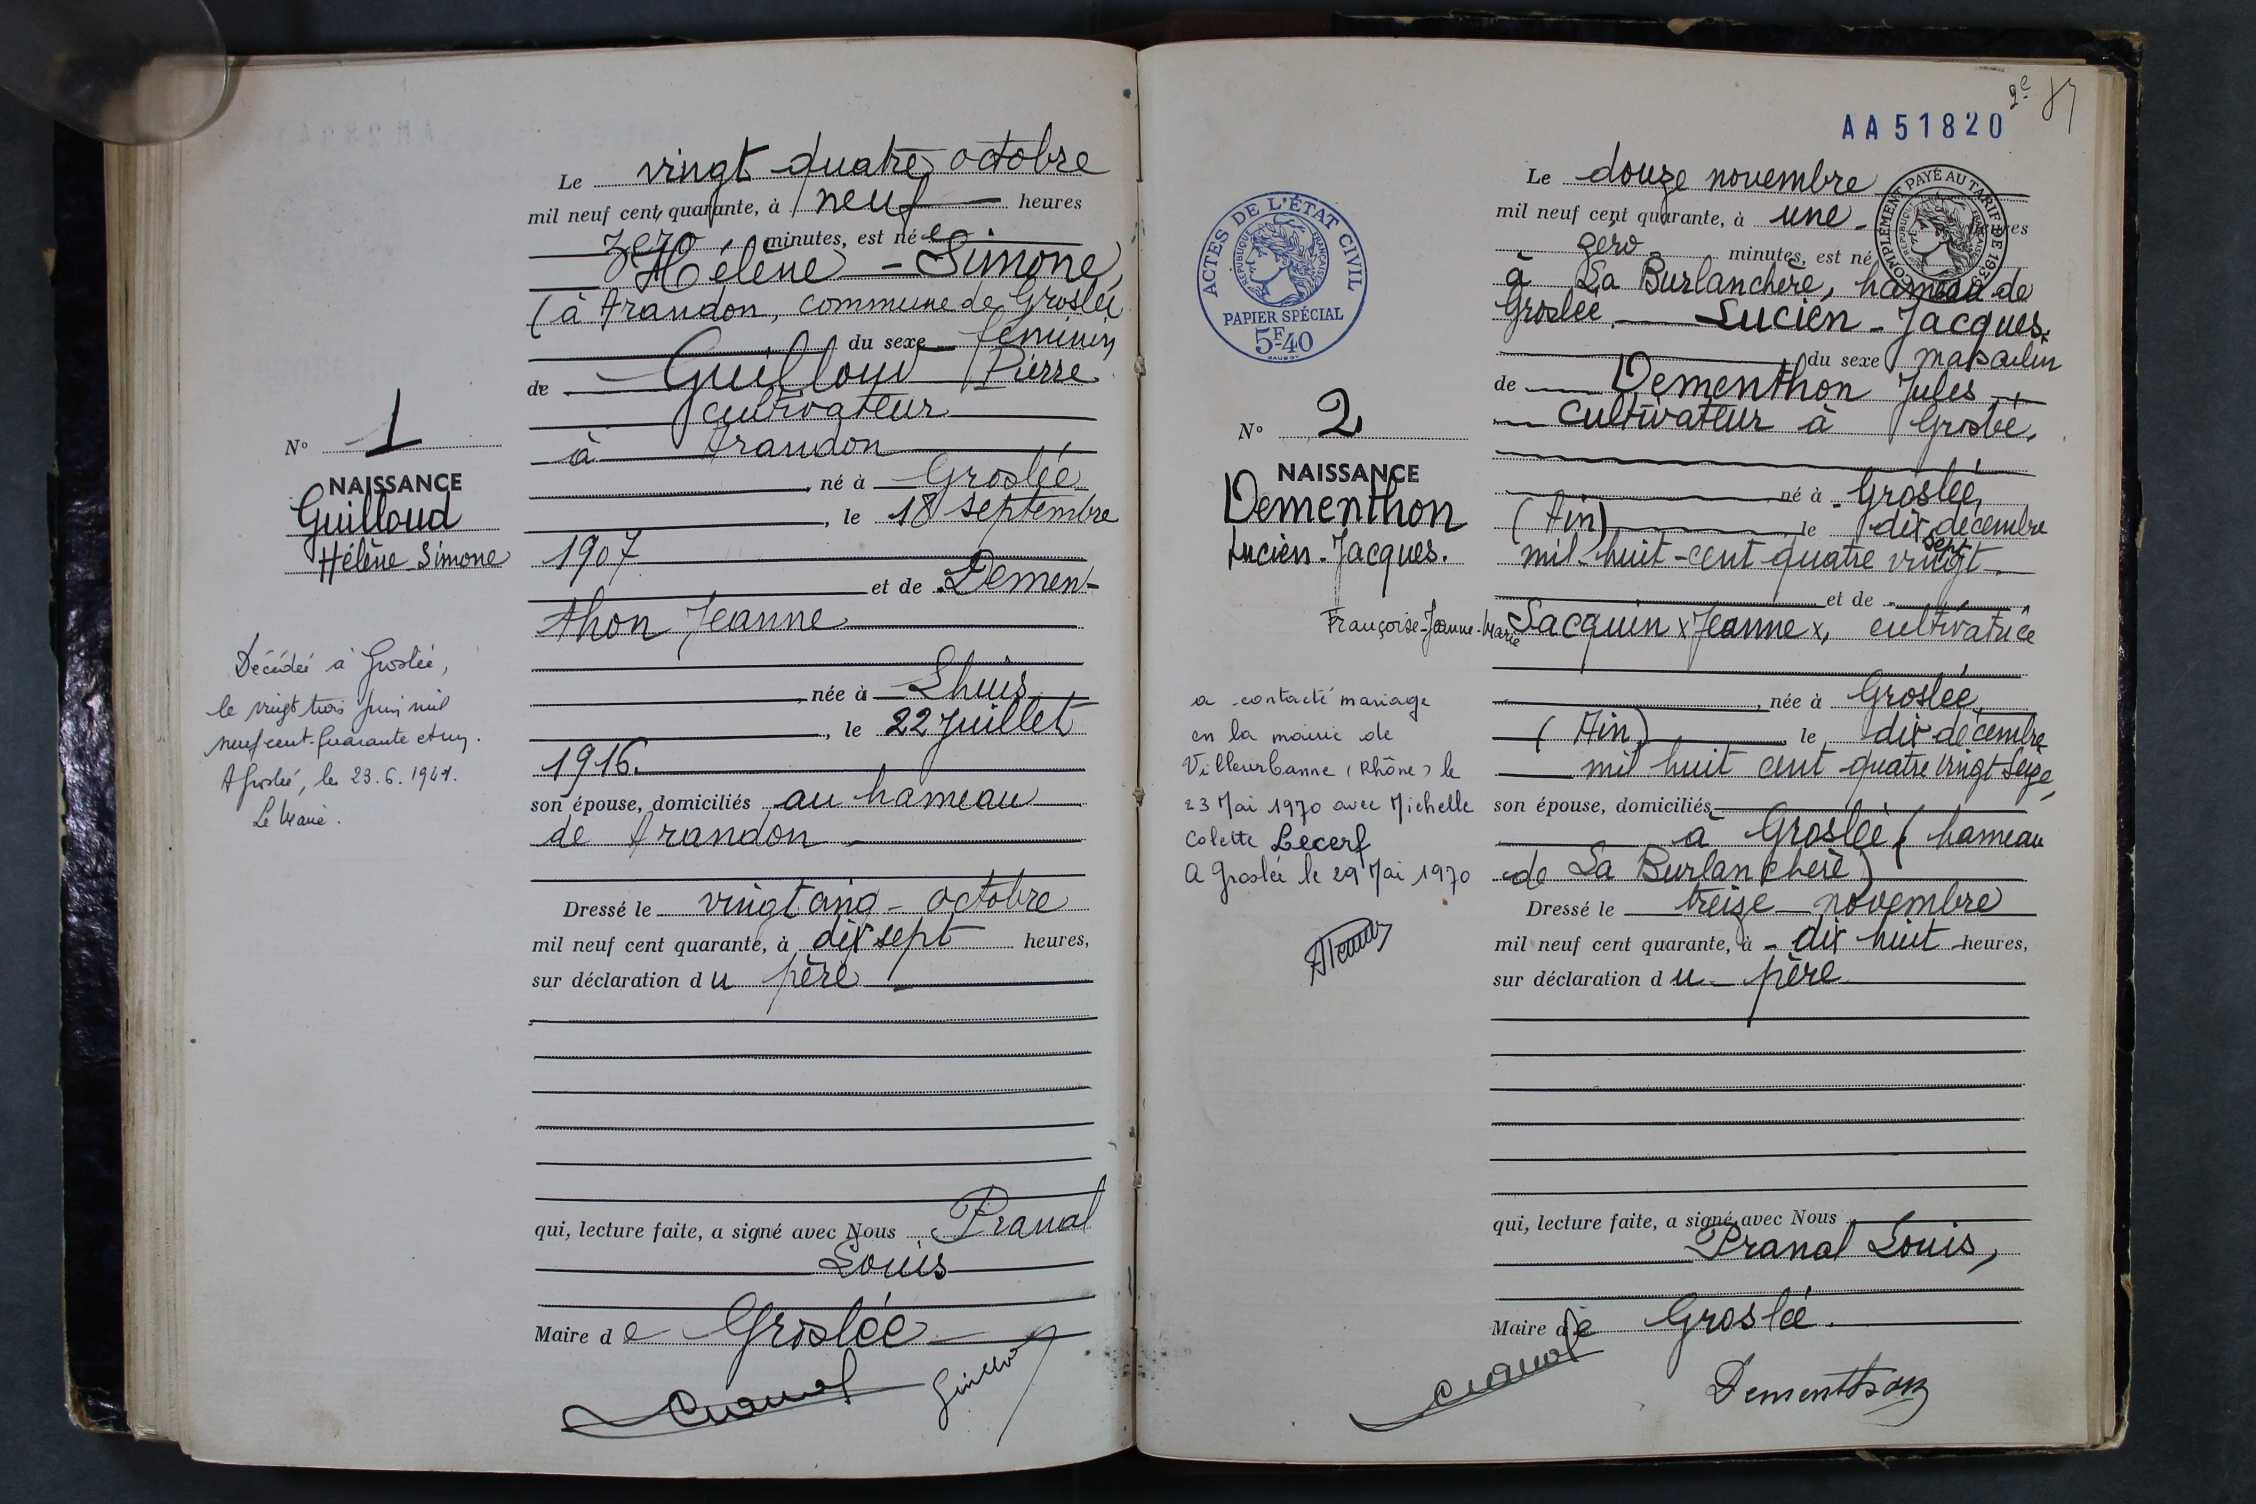 Le vingt quatre octobre
mil neuf cent quarante, à neuf heures
zero minutes, est née
Hélène - Simone
(à Arandon, commune de Groslée
du sexe féminin
de Guilloud Pierre
cultivateur
à Arandon
né à Groslée
, le 18 septembre
1907
et de Demen-
thon Jeanne
née à Lhuis
, le 22 Juillet
1916.
son épouse, domiciliés au hameau
de Arandon
Dressé le vingt cinq - octobre
mil neuf cent quarante, à dix sept heures,
sur déclaration du père
qui, lecture faite, a signé avec Nous Pranal
Louis
Maire de Groslée
N° 1
NAISSANCE
Guilloud
Hélène Simone
Décédée à Groslée,
le vingt trois juin mil
neuf cent quarante et un.
A Groslée, le 23.6.1941.
Le Maire.
2e
AA51820
Le douze novembre
mil neuf cent quarante, à une heures
zéro minutes, est né
à La Burlanchère, hameau de
Groslée. Lucien - Jacques.
du sexe masculin
de Dementhon Jules
cultivateur à Groslée.
né à Groslée,
(Ain) le dix décembre
mil-huit-cent quatre vingt sept
et de
Françoise-Jeanne-Marie Sacquin x Jeanne x, cultivatrice
, née à Groslée,
(Ain) le dix décembre
mil huit cent quatre vingt seize,
son épouse, domiciliés
à Groslée (hameau
de La Burlanchère)
Dressé le treize novembre
mil neuf cent quarante, à dix huit heures,
sur déclaration du père
qui, lecture faite, a signé avec Nous
Pranal Louis,
Maire de Groslée.
Dementhon
ACTES DE L'ÉTAT CIVIL
RÉPUBLIQUE FRANÇAISE
PAPIER SPÉCIAL
5F40
COMPLÉMENT PAYÉ AU TARIF DE 1939
RÉPUBLIQUE FRANÇAISE
N° 2
NAISSANCE
Dementhon
Lucien-Jacques.
a contacté mariage
en la mairie de
Villeurbanne (Rhône) le
23 Mai 1970 avec Michelle
Colette Lecerf
A Groslée le 29 Mai 1970